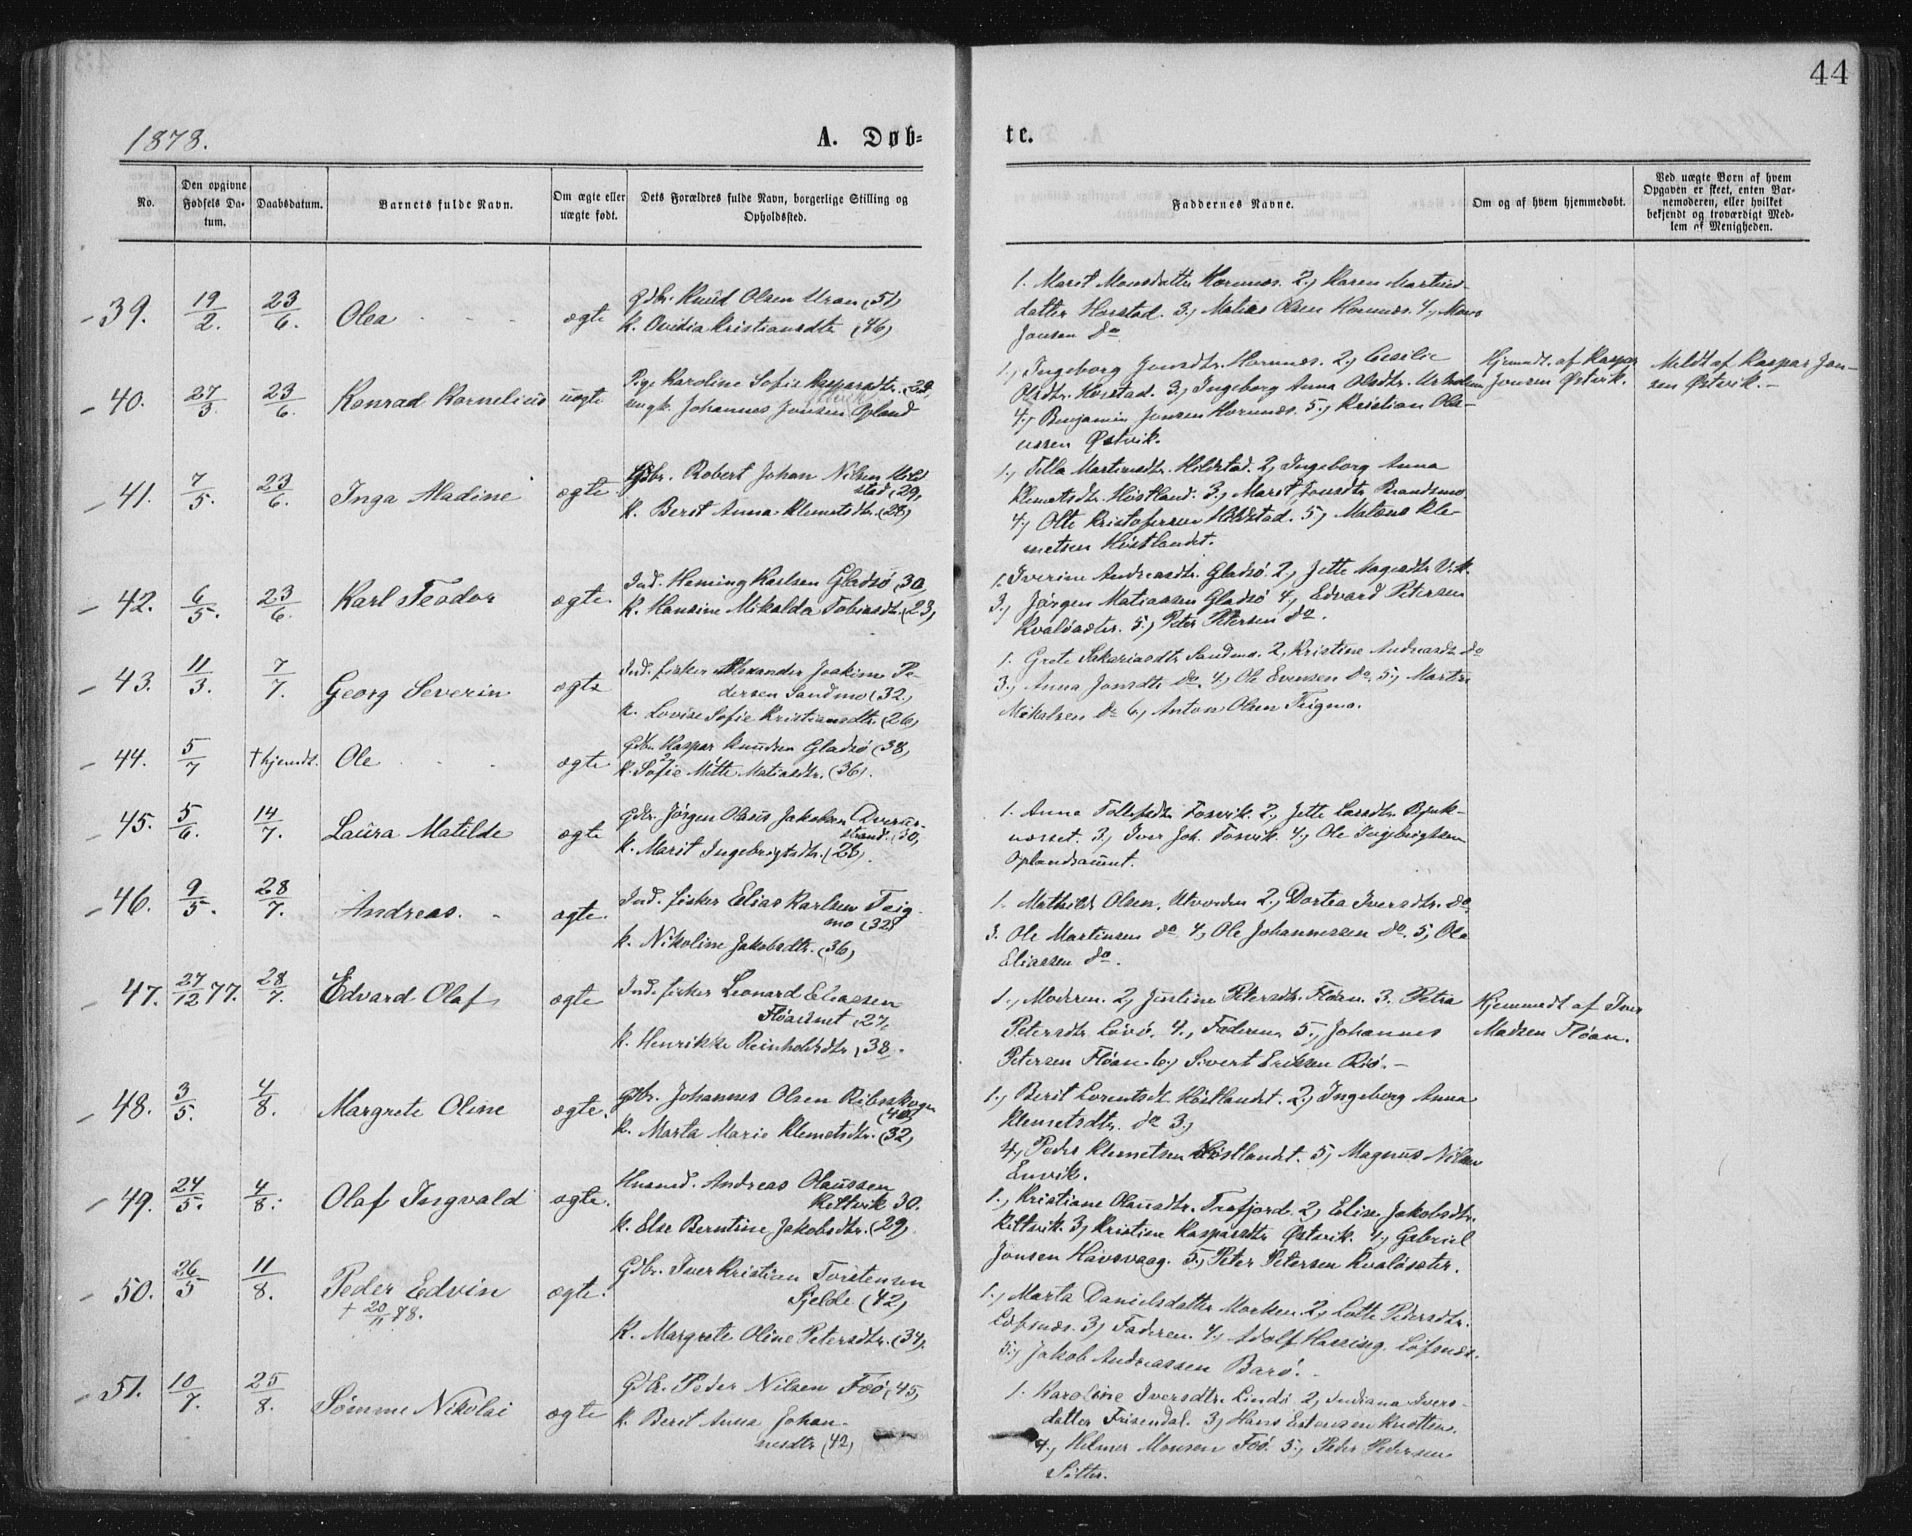 44
1878.
A. Døb-
te.
No.
Den opgivne Fødsels Da-tum.
Daabsdatum.
Barnets fulde Navn.
Om ægte eller uægte født.
Dets Forældres fulde Navn, borgerlige Stilling og Opholdssted.
Faddernes Navne.
Om og af hvem hjemmedøbt.
Ved uægte Børn af hvem Opgaven er skeet, enten Bar-nemoderen, eller hvilket bekjendt og troværdigt Med-lem af Menigheden.
39. 19/2. 23/6. Olea ægte
Gdbr. Knud Olsen Uran (51)
k. Ovidia Kristiansdtr (46)
1. Marit Monsdatter Hornnes. 2, Karen Martins-
datter Horstad. 3, Matias Olsen Hornnes. 4, Mons
Jonsen do
40. 27/3 23/6. Konrad Kornelius uægte
Pige Karoline Sofie Kasparsdtr. 29,
ungk. Johannes Jonsen Opland
1, Ingeborg Jonsdtr. Hornnes. 2, Cecilie
Olsdtr. Horstad. 3, Ingeborg Anna Olsdtr.
4, Benjamin Jonsen Hornnes. 5, Kristian Ola-
ussen Østvik.
Hjemmdt. af Kaspar
Jonsen Østvik.
Meldt af Kaspar Jon-
sen Østvik. -
41. 7/5. 23/6. Inga Aladine ægte
Gdbr. Robert Johan Nilsen Hild
stad (29,
k. Berit Anna Klemetsdtr. (28)
1, Martinsdtr. Hildstad. 2, Ingeborg Anna
Klemetsdtr. Høstland. 3, Marit Jonsdtr Brandsmo
4, Otte Kristofersen Hildstad. 5, Kle-
metsen Høstlandet.
42. 6/5. 23/6. Karl Teodor ægte
Ind. Heming Karlsen Gladsø (30,
k. Hansine Mikalda Tobiasdtr. (23,
1. Iverine Andreasdtr. Gladsø 2, Jette Aagesdtr Vik.
3, Jørgen Matiassen Gladsø 4, Edvard Petersen
Kvaløsæter. 5, Peter Petersen do.
43. 11/3. 7/7. Georg Severin ægte
Ind. fisker Alexander Joakim Pe-
dersen Sandmo (32,
k. Lovise Sofie Kristiansdtr. (26)
1. Grete Sakariasdtr Sandmo. 2, Kristine Andreasdtr do
3, Anna Jonsdtr do. 4, Ole Evensen do. 5, Martin
Mikalsen do 6, Anton Olsen Teigmo.
44. 5/7 † hjemdt. Ole ægte
Gdbr. Kaspar Knudsen Gladsø (38,
k. Sofie Mette Matiasdtr. (36).
45. 5/6. 14/7. Laura Matilde ægte
Gdbr. Jørgen Olaus Jakobsen
strand. (30,
k. Marit Ingebrigtsdtr. (26).
1. Anne Fosvik. 2, Jette Larsdtr. Bjuk-
nesset. 3, Iver Joh. Fosvik. 4, Ole Ingebrigtsen
Oplandsaunet.
46. 9/5. 28/7. Andreas ægte
Ind. fisker Elias Karlsen Teig-
mo (32)
k. Nikoline Jakobsdtr. (36)
1. Mathilde Olsen, Utvorden 2, Dortea Iversdtr. do,
3. Ole Martinsen do 4, Ole Johannessen do. 5, Ole
Eliassen do.
47. 27/12 77. 28/7. Edvard Olaf ægte
Ind. fisker Leonard Eliassen
Fløaunet (27,
k. Henrikke Reinholdsdtr (38.
1, Moderen. 2, Justine Petersdtr. Fløan. 3. Petra
Petersdtr Løvø. 4, Faderen 5, Johannes
Petersen Fløan. 6, Sivert Eriksen Risø. -
Hjemmedt af Iver
Madsen Fløan.
48. 3/5. 4/8. Margrete Oline ægte.
Gdbr. Johannes Olsen Ribnskogen
(40)
k. Marta Marie Klemetsdtr. (32)
1, Berit Lorentsdtr Høstlandet. 2, Ingeborg Anna
Klemetsdtr. do 3,
4, Peder Klemetsen Høstlandet. 5, Magnus Nilsen
Emvik.
49. 24/5. 4/8. Olaf Ingvald ægte.
Husmd. Andreas Olaussen
Kiltvik 30.
k. Else Berntine Jakobsdtr. (29)
1, Kristiane Olausdtr. 2, Elise Jakobsdtr.
Kiltvik. 3, Kristine Kasparsdtr Østvik. 4, Gabriel
Jonsen Havsvaag. 5, Peter Petersen Kvaløsæter.
50. 26/5 11/8. Peder Edvin ægte.
† 20/11 78.
Gdbr. Iver Kristian Torstensen
Sjelde (42)
k. Margrete Oline Petersdtr. (34).
1, Marta Danielsdatter Morken. 2, Lotte Pedersdtr.
Løfsnæs. 3, Faderen. 4, Adolf Hassing. Løfsnæs.
5, Jakob Andreassen Barø.
51. 10/7. 25/8. Sømme Nikolai ægte
Gdbr. Peder Nilsen Foø (45,
k. Berit Anna Johan-
nesdtr (42)
1. Karoline Iversdtr. Lindø 2, Indiana Ivers-
datter Frisendal. 3, Hans Estensen Knotten.
4, Helmer Monsen Foø. 5, Peder Pedersen
Sitter.